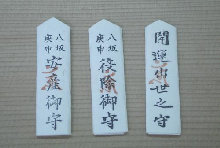 開運出世之守
八坂庚申
役除御守
八坂庚申
安産御守